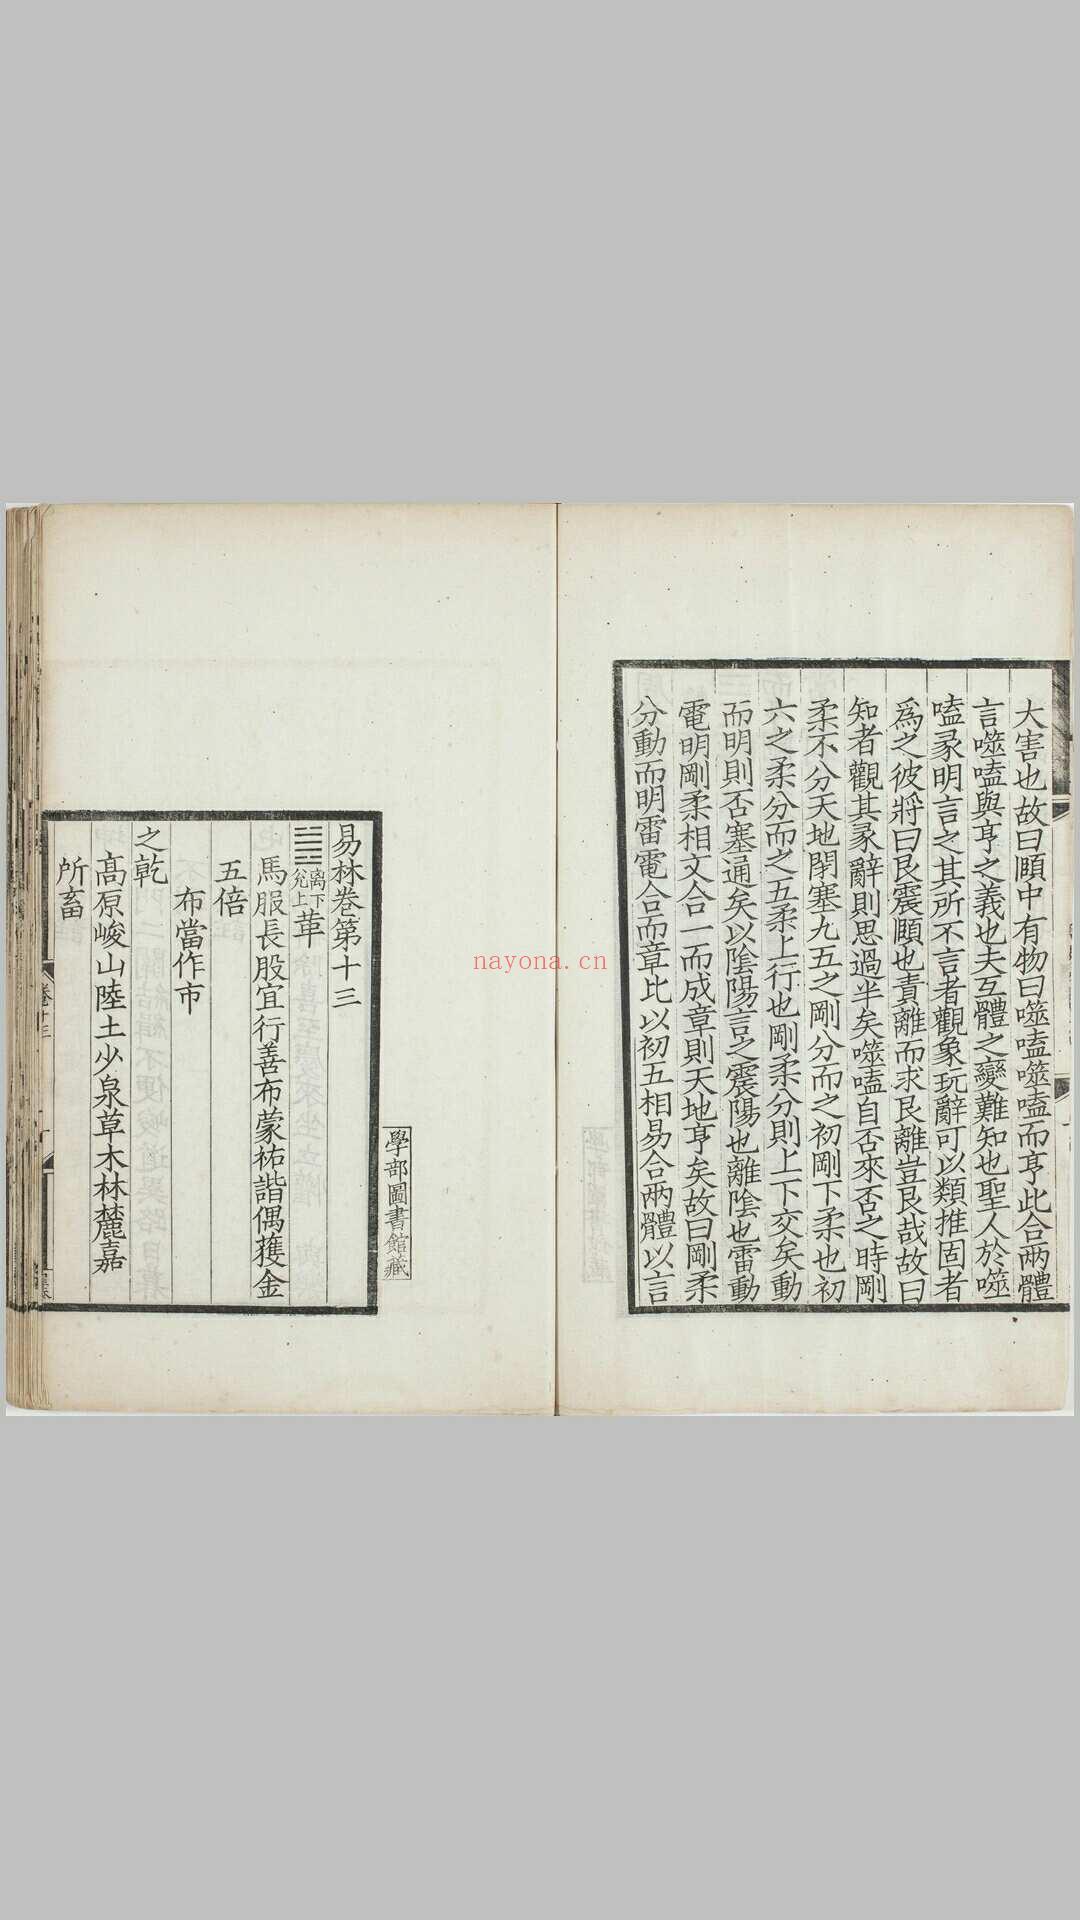 大害也故曰頤中有物曰噬嗑噬嗑而亨此合兩體
言噬嗑與亨之義也夫互體之變難知也聖人於噬
嗑彖明言之其所不言者觀象玩辭可以類推固者
爲之彼將曰艮震頤也責離而求艮離豈艮哉故曰
知者觀其彖辭則思過半矣噬嗑自否來否之時剛
柔不分天地閉塞九五之剛分而之初剛下柔也初
六之柔分而之五柔上行也剛柔分則上下交矣動
而明則否塞通矣以陰陽言之震陽也離陰也雷動
電明剛柔相文合一而成章則天地亨矣故曰剛柔
分動而明雷電合而章比以初五相易合兩體以言
nayona.cn
學部圖書館藏
易林卷第十三
離下兊上革
馬服長股宜行善布蒙祐諧偶獲金
五倍
布當作市
之乾
髙原峻山陸土少泉草木林麓嘉
所畜
卷十三